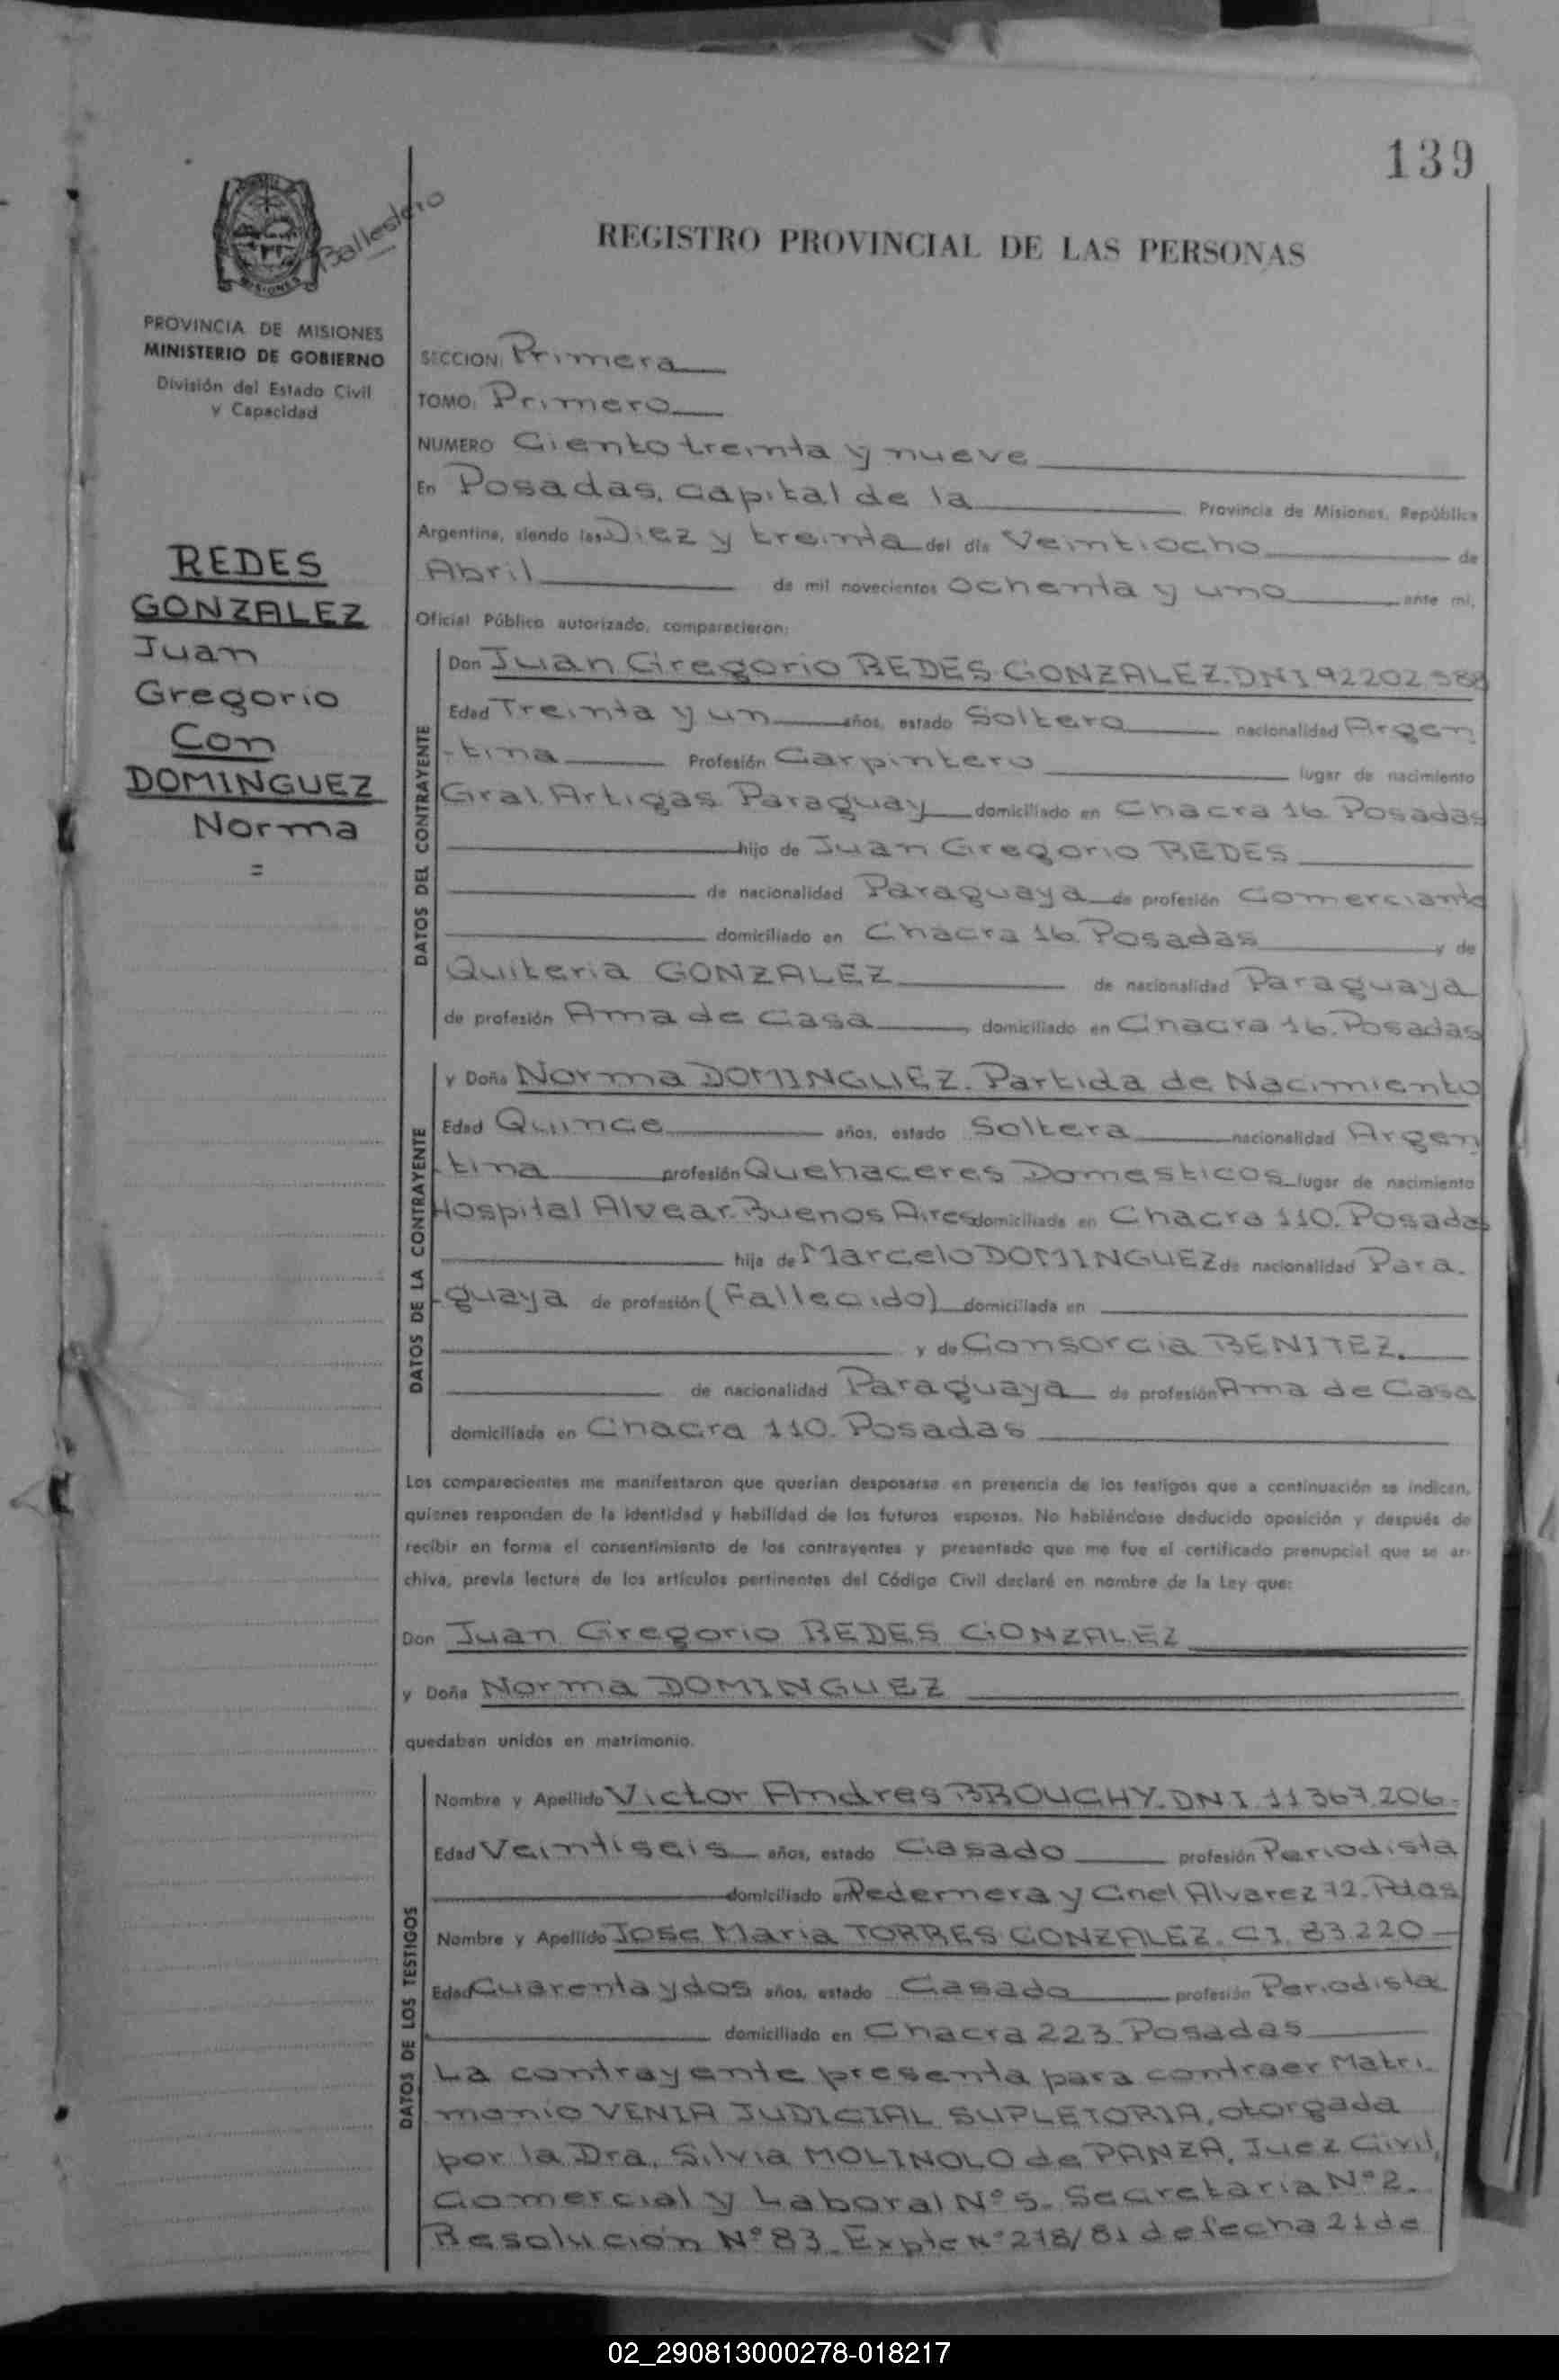 139
Ballestero
REGISTRO PROVINCIAL DE LAS PERSONAS
MISIONES
PROVINCIA DE MISIONES
MINISTERIO DE GOBIERNO
División del Estado Civil
y Capacidad
REDES
GONZALEZ
Juan
Gregorio
Con
DOMINGUEZ
Norma
=
SECCION: Primera
TOMO: Primero
NUMERO Ciento treinta y nueve
En Posadas, Capital de la Provincia de Misiones, República
Argentina, siendo las Diez y treinta del día Veintiocho de
Abril de mil novecientos Ochenta y uno ante mí,
Oficial Público autorizado, comparecieron:
DATOS DEL CONTRAYENTE
Don Juan Gregorio REDES GONZALEZ. DNI 92202588
Edad Treinta y un años, estado Soltero nacionalidad Argen
-tina Profesión Carpintero lugar de nacimiento
Gral. Artigas Paraguay domiciliado en Chacra 16 Posadas
hijo de Juan Gregorio REDES
de nacionalidad Paraguaya de profesión Comerciante
domiciliado en Chacra 16 Posadas y de
Quiteria GONZALEZ de nacionalidad Paraguaya
de profesión Ama de Casa domiciliado en Chacra 16. Posadas
DATOS DE LA CONTRAYENTE
y Doña Norma DOMINGUEZ. Partida de Nacimiento
Edad Quince años, estado Soltera nacionalidad Argen
-tina profesión Quehaceres Domesticos lugar de nacimiento
Hospital Alvear. Buenos Aires domiciliada en Chacra 110. Posadas
hija de Marcelo DOMINGUEZ de nacionalidad Para-
-guaya de profesión (Fallecido) domiciliada en
y de Consorcia BENITEZ.
de nacionalidad Paraguaya de profesión Ama de Casa
domiciliada en Chacra 110. Posadas
Los comparecientes me manifestaron que querían desposarse en presencia de los testigos que a continuación se indican,
quienes responden de la identidad y habilidad de los futuros esposos. No habiéndose deducido oposición y después de
recibir en forma el consentimiento de los contrayentes y presentado que me fue el certificado prenupcial que se ar-
chiva, previa lectura de los artículos pertinentes del Código Civil declaré en nombre de la Ley que:
Don Juan Gregorio REDES GONZALEZ
y Doña Norma DOMINGUEZ
quedaban unidos en matrimonio.
DATOS DE LOS TESTIGOS
Nombre y Apellido Victor Andres BROUCHY. DNI 11367.206.
Edad Veintiseis años, estado Casado profesión Periodista
domiciliado en Pedernera y Cnel Alvarez 72. Pdas
Nombre y Apellido Jose Maria TORRES GONZALEZ. CI. 83.220
Edad Cuarenta y dos años, estado Casado profesión Periodista
domiciliado en Chacra 223. Posadas
La contrayente presenta para contraer Matri-
monio VENIA JUDICIAL SUPLETORIA, otorgada
por la Dra. Silvia MOLINOLO de PANZA, Juez Civil,
Comercial y Laboral Nº 5. Secretaria Nº 2.
Resolución Nº 83. Expte Nº 278/81 de fecha 21 de
02_290813000278-018217